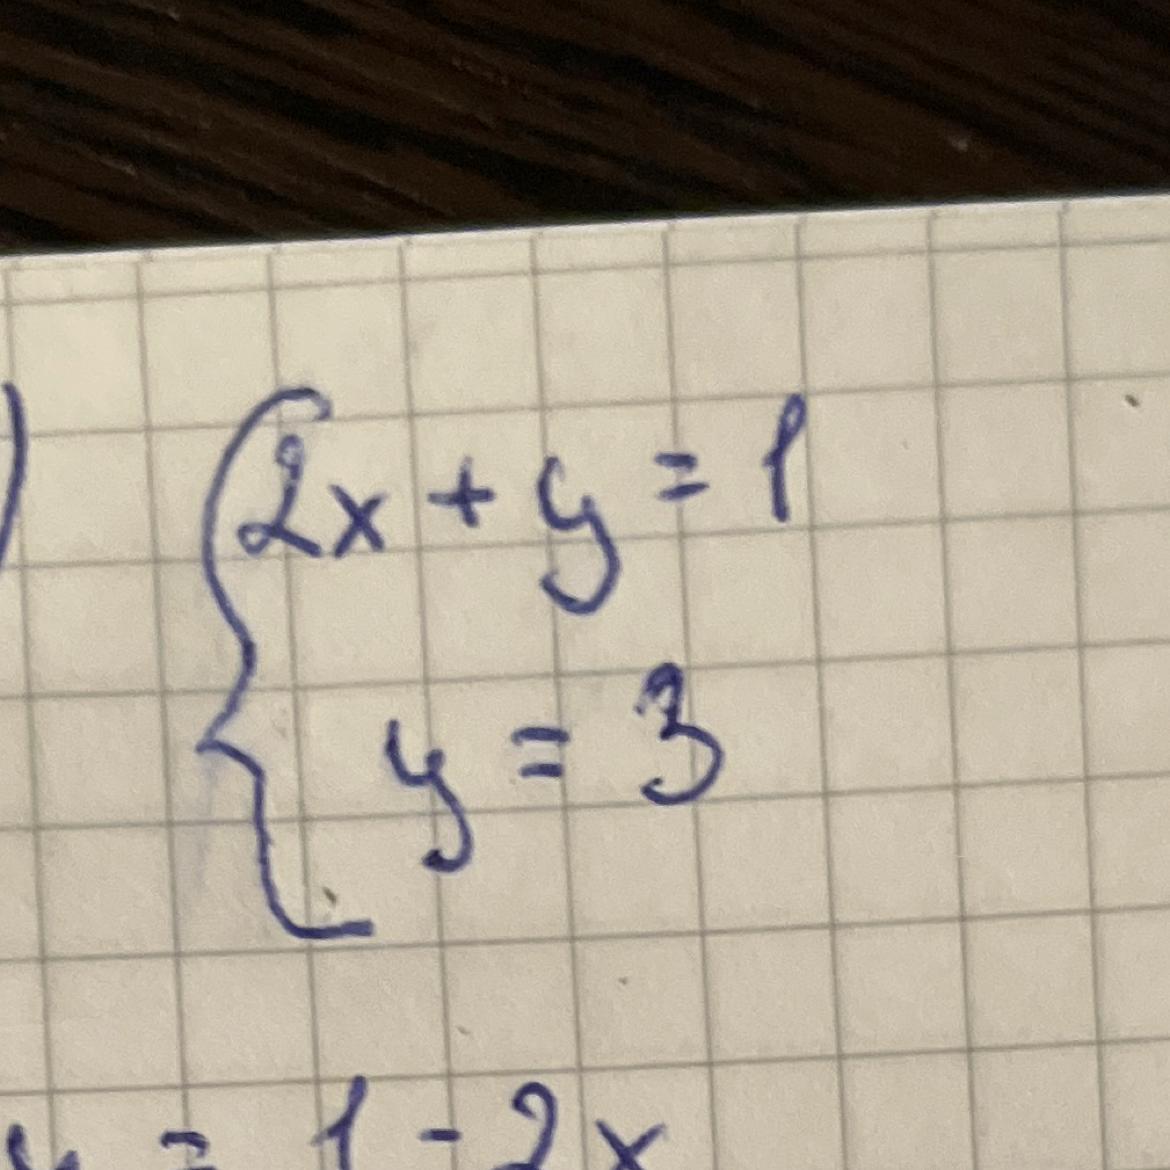 ) { 2x + y = 1
y = 3
y = 1 - 2x